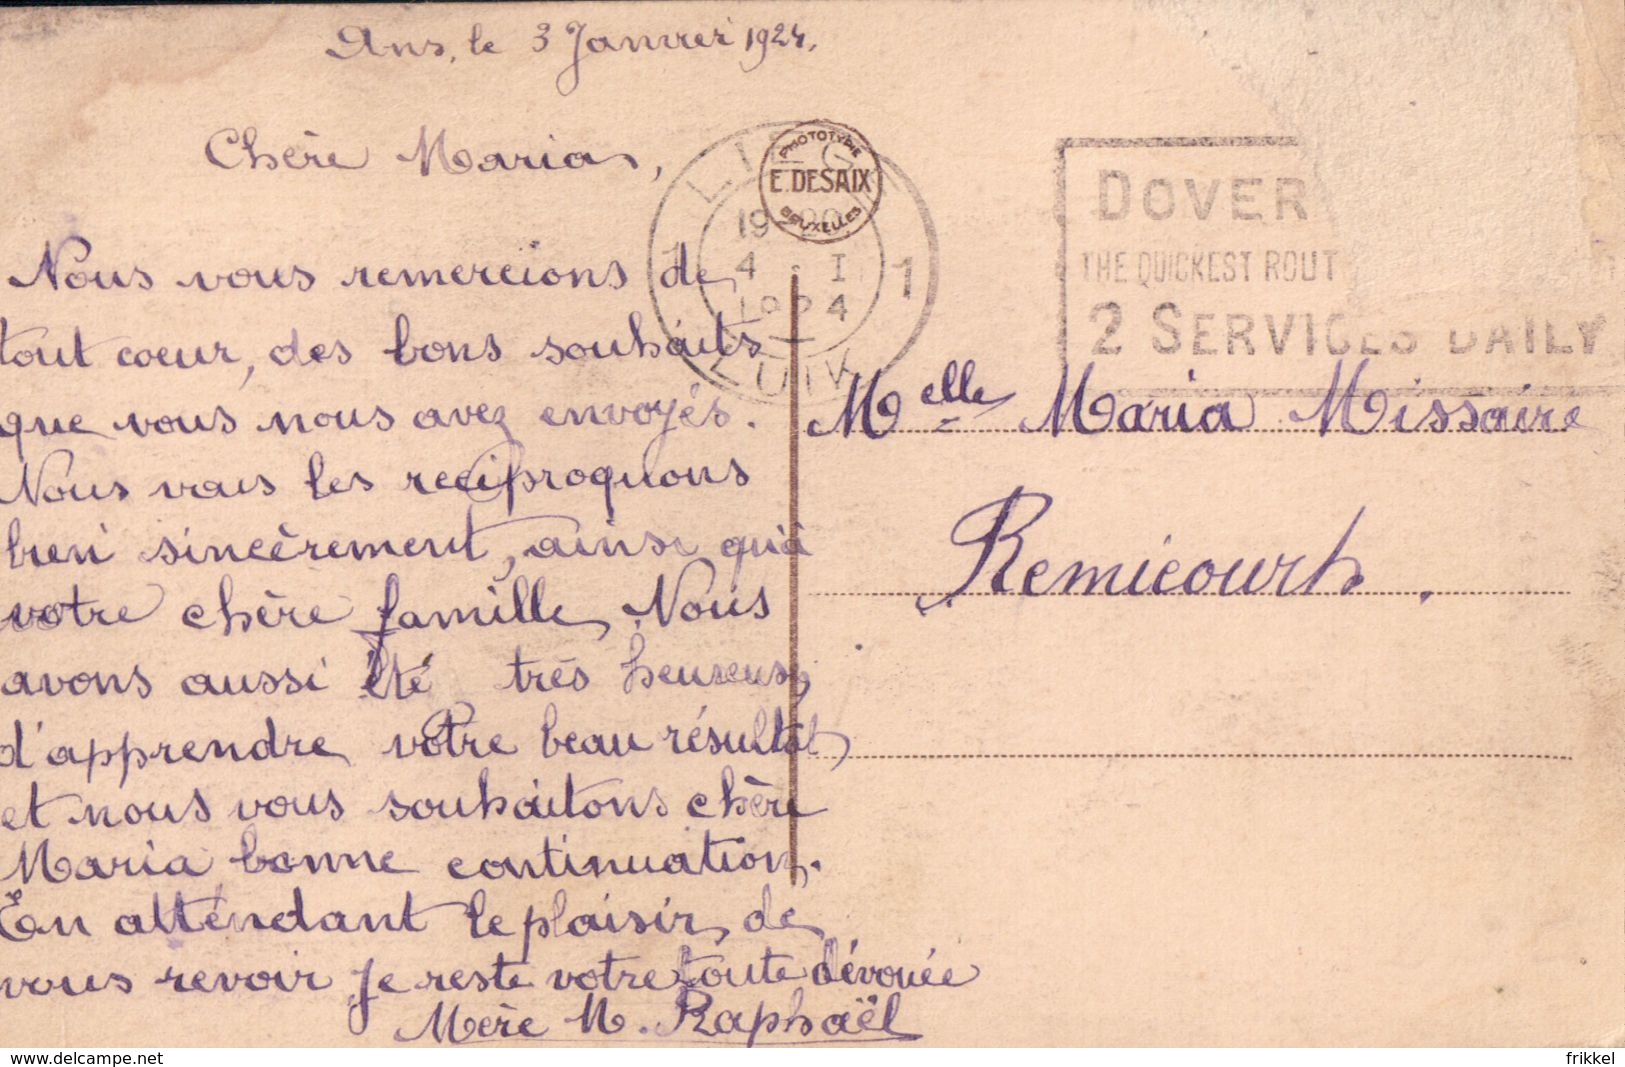 Ans, le 3 Janvier 1924.
Chère Maria,
Nous vous remercions de
tout coeur, des bons souhaits
que vous nous avez envoyés.
Nous vous les reciproquons
bien sincèrement, ainsi qu'à
votre chère famille. Nous
avons aussi été très heureuse
d'apprendre votre beau résultat,
et nous vous souhaitons chère
Maria bonne continuation.
En attendant le plaisir de
vous revoir je reste votre toute dévouée
Mère M. Raphaël
PHOTOTYPIE
E. DESAIX
BRUXELLES
19-20
4 - I
1924
1 1
LUIK
DOVER
THE QUICKEST ROUT
2 SERVICES DAILY
Melle Maria Missaire
Remicourt.
www.delcampe.net
frikkel